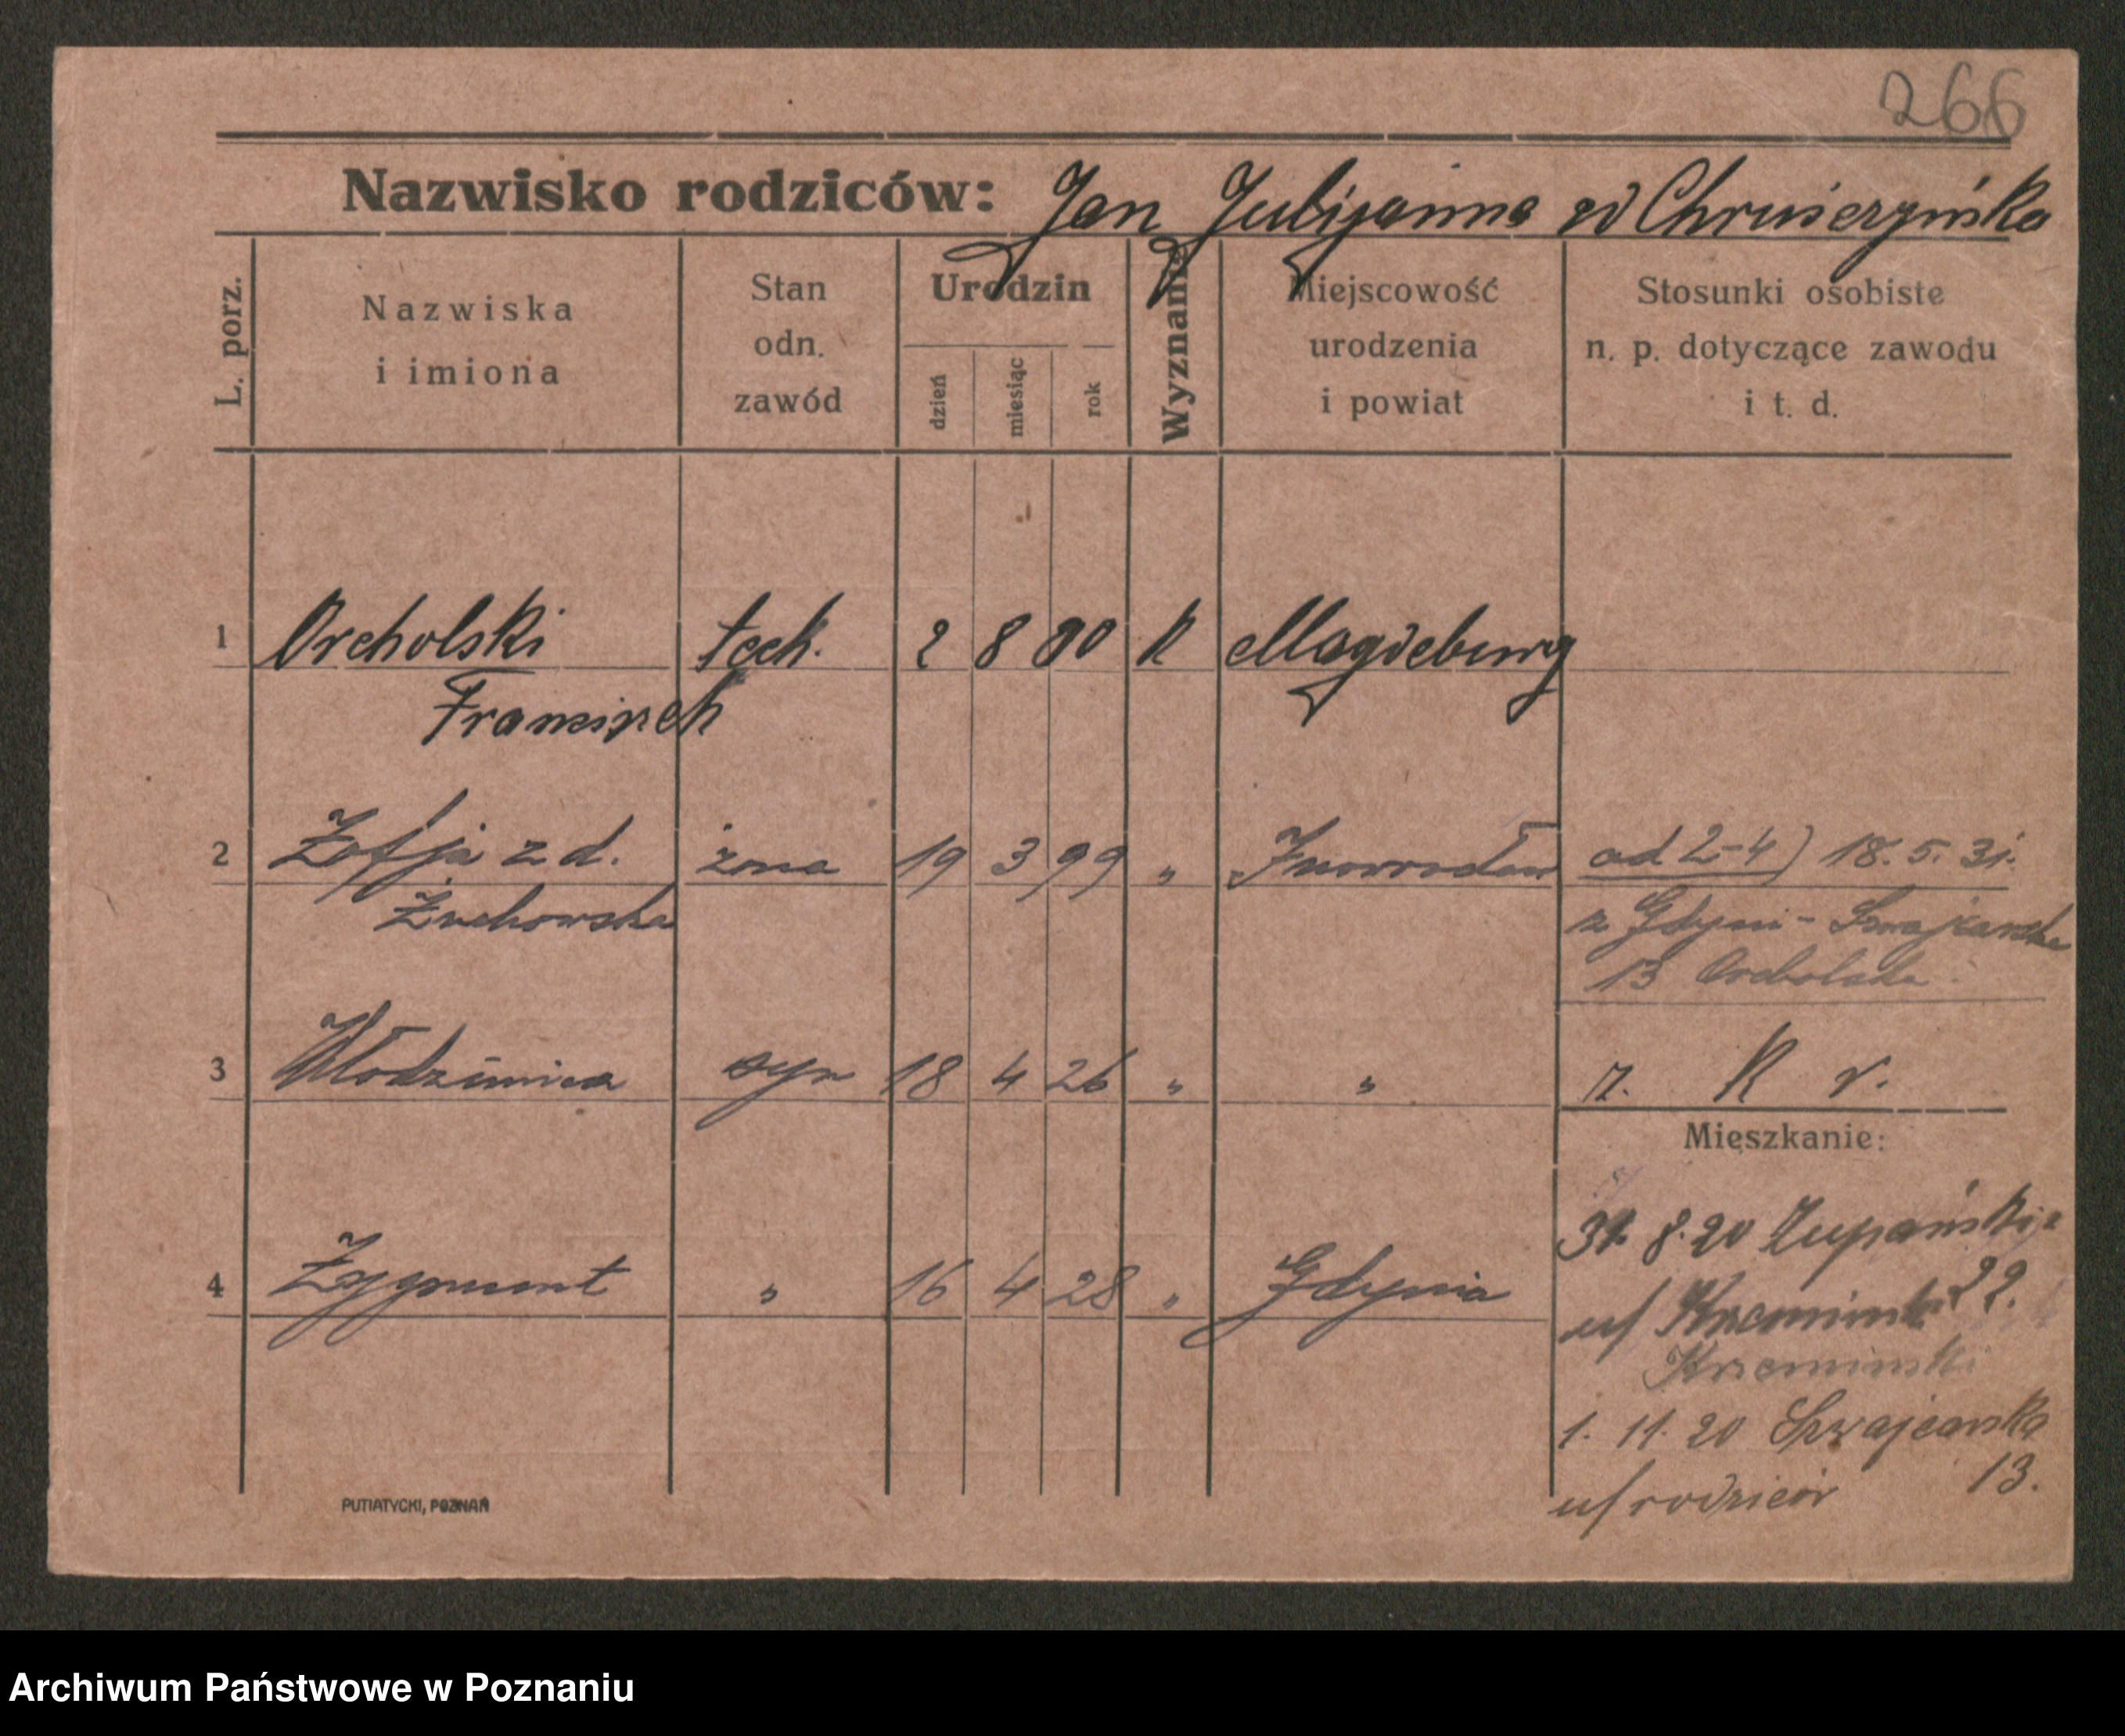 266
Nazwisko rodziców: Jan Julijanna zd Chruśczyńska
L. porz.
Nazwiska
i imiona
Stan
odn.
zawód
Urodzin
dzień
miesiąc
rok
Wyznanie
Miejscowość
urodzenia
i powiat
Stosunki osobiste
n. p. dotyczące zawodu
i t. d.
1 Orcholski tech. 2 8 00 K Magdeburg
Franciszek
2 Zofja z d. żona 19 3 99 " Inowrocław od 2-4) 18. 5. 31.
Żuchowska z Gdyni - Szwajcarska
13 Orcholska
3 Włodzimierz syn 18 4 26 " " K r.
Mieszkanie:
4 Zygmunt " 16 4 28 " Gdynia
31. 8. 20 Żupańskiego
u/ 22.
Krzeminski
1. 11. 20 Szwajcarska
u/ rodziców 13.
PUTIATYCKI, POZNAŃ
Archiwum Państwowe w Poznaniu